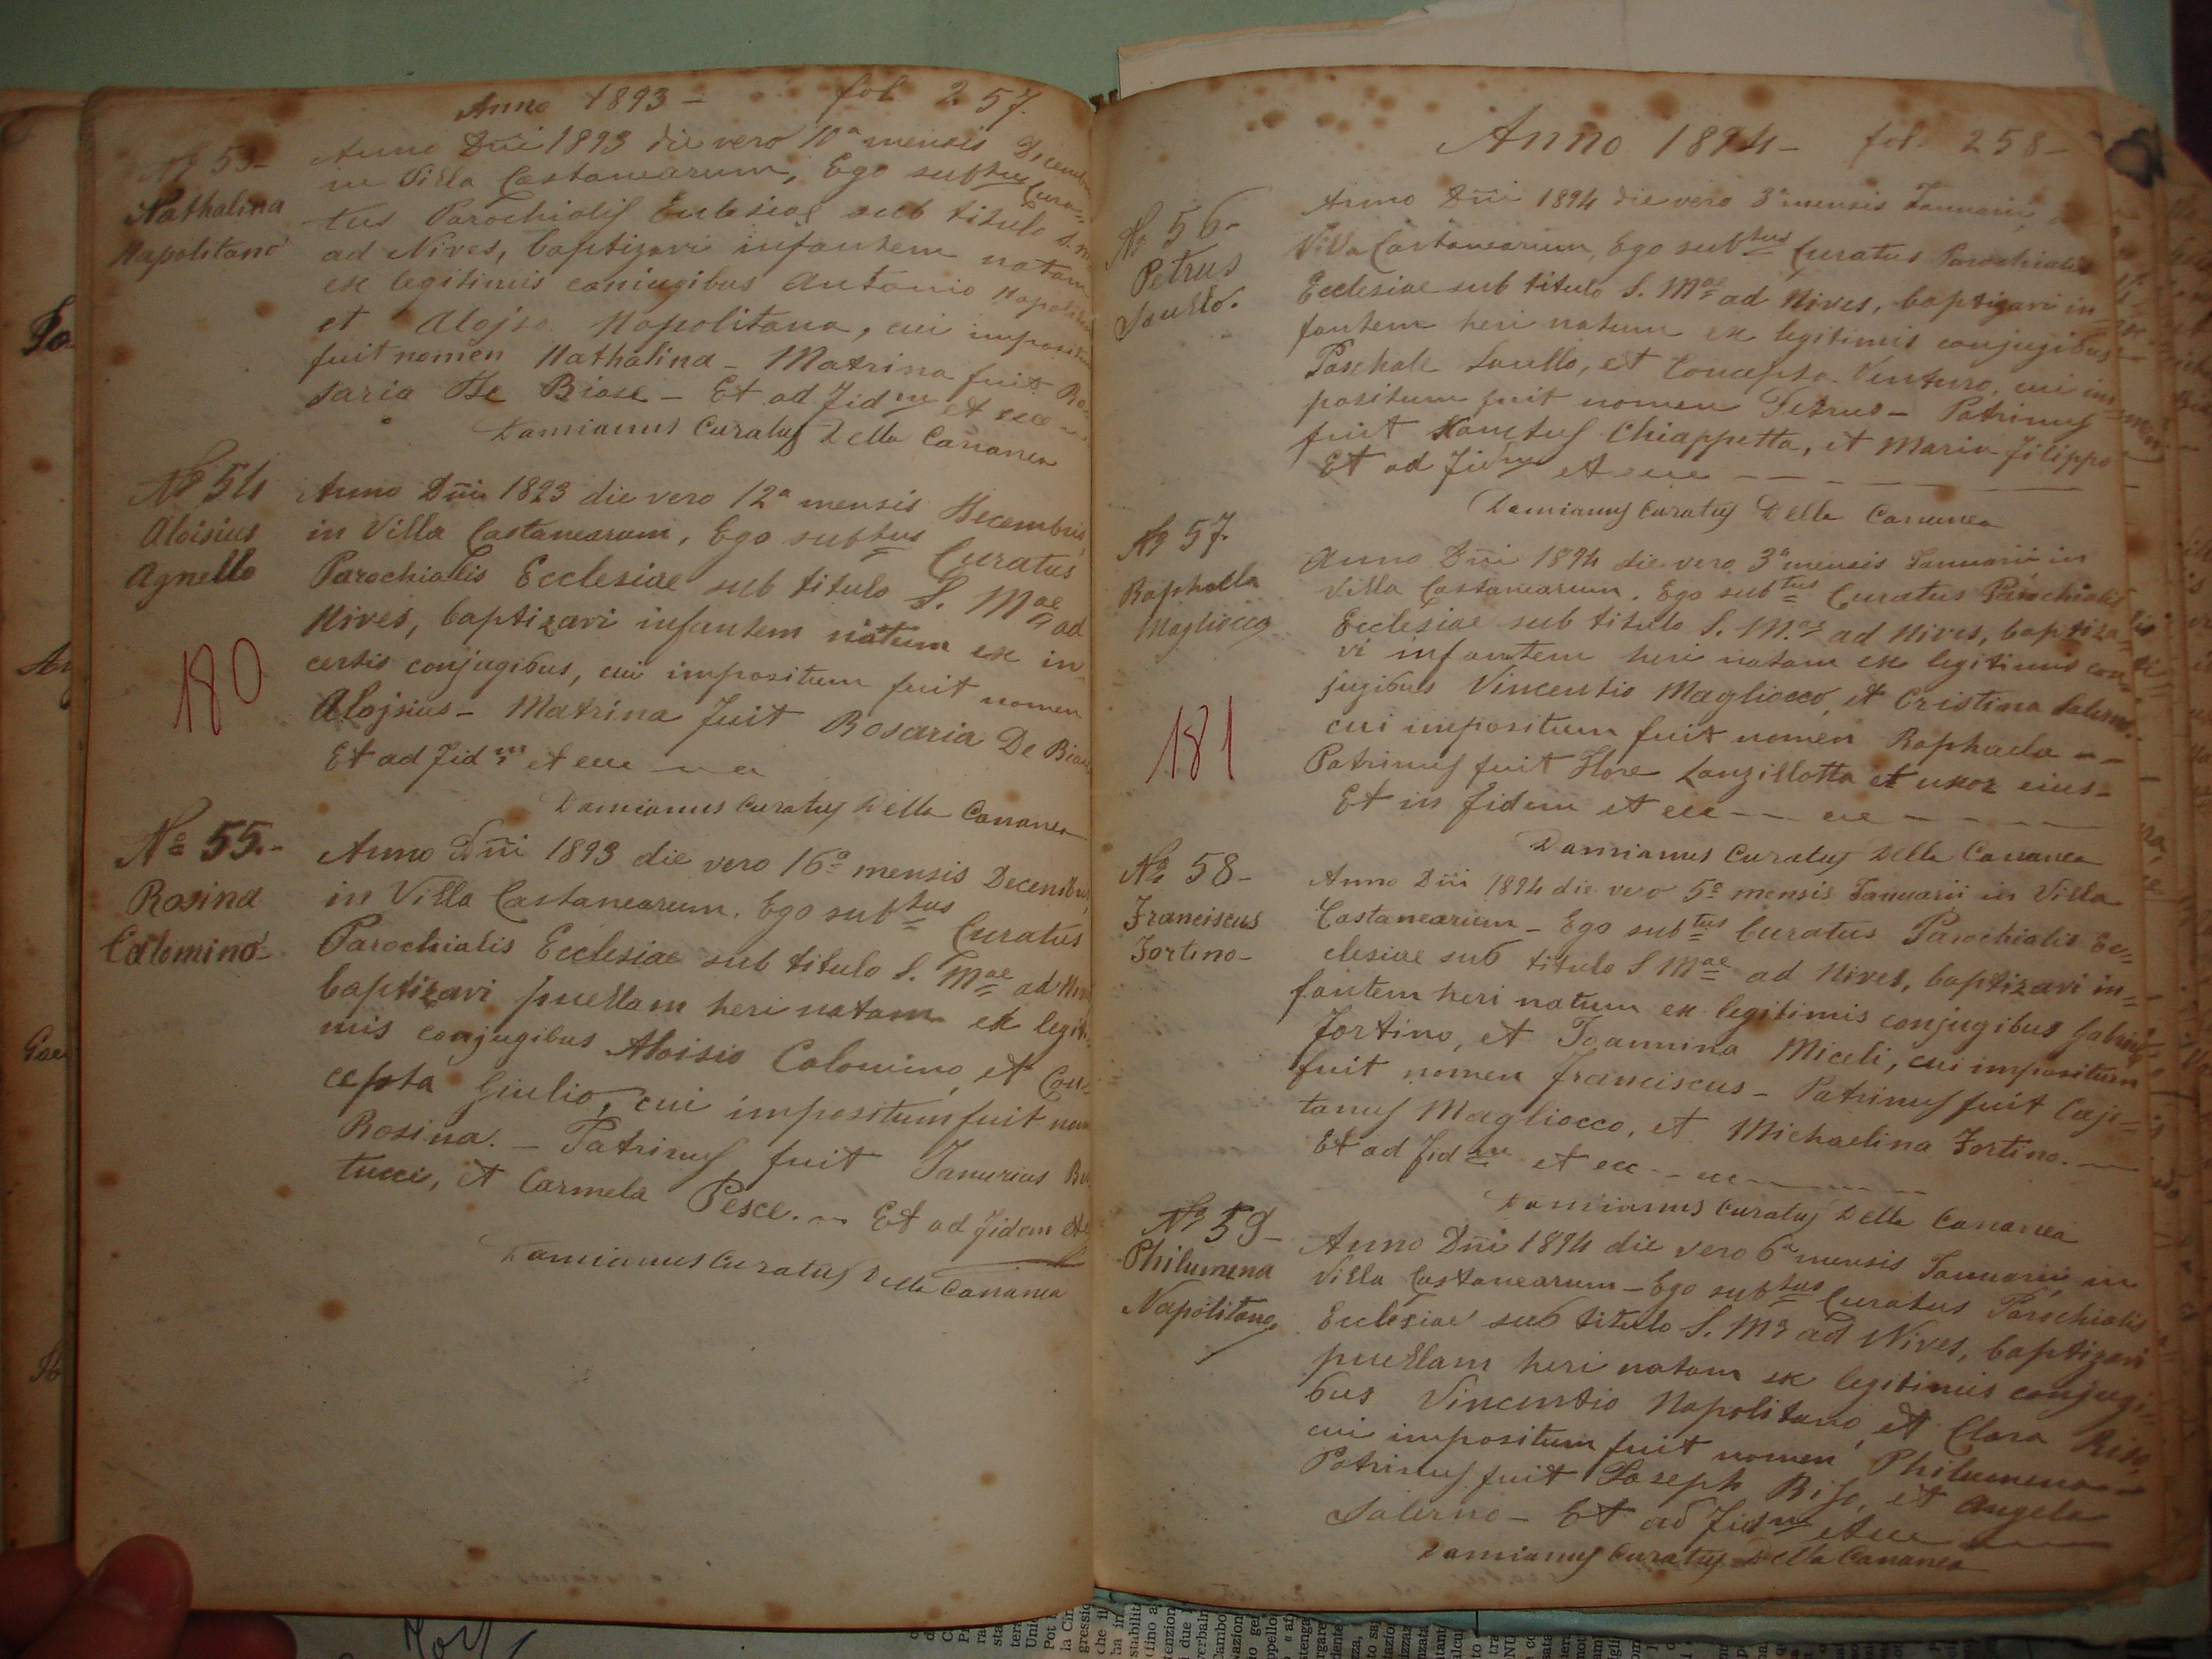 Anno 1893 - fol 257.
No 53-
Nathalina
Napolitano
Anno Dni 1893 die vero 10a mensis Decembris
in Villa Castanearum, Ego subtus Cura=
tus Parochialis Ecclesiae sub titulo S. M.
ad Nives, baptizavi infantem natam
ex legitimis coniugibus Antonio Napolitano
et Alojsa Napolitana, cui impositum
fuit nomen Nathalina - Matrina fuit Ro=
saria De Biase - Et ad fidm et ecc
Damianus Curatus Della Cananea
No 54
Aloisius
Agnello
180
Anno Dni 1893 die vero 12a mensis Decembris,
in Villa Castanearum, Ego subtus Curatus
Parochialis Ecclesiae sub titulo S. Mae ad
Nives, baptizavi infantem natum ex in=
certis conjugibus, cui impositum fuit nomen
Alojsius - Matrina fuit Rosaria De Biase
Et ad fidm et ecc
Damianus Curatus Della Cananea
No 55.-
Rosina
Calomino-
Anno Dni 1893 die vero 16a mensis Decembris,
in Villa Castanearum, Ego subtus Curatus
Parochialis Ecclesiae sub titulo S. Mae ad Niv
baptizavi puellam heri natam ex legit=
mis conjugibus Aloisio Calomino, et Con=
cepta Giulio, cui impositum fuit nom
Rosina. - Patrinus fuit Januarius Ber
tucci, et Carmela Pesce. - Et ad fidem etc
Damianus Curatus Della Cananea
Anno 1894 - fol. 258-
No 56-
Petrus
Saullo.
Anno Dni 1894 die vero 3a mensis Januarii, in
Villa Castanearum, Ego subtus Curatus Parochialis
Ecclesiae sub titulo S. Mae ad Nives, baptizavi in=
fantem heri natum ex legitimis conjugibus
Paschale Saullo, et Concepta Venturo, cui im=
positum fuit nomen Petrus - Patrinus
fuit Sanctus Chiappetta, et Maria Filippo
Et ad fidm et ecc
Damianus Curatus Della Cananea
No 57.
Raphaela
Magliocco
181
Anno Dni 1894 die vero 3a mensis Januarii in
Villa Castanearum. Ego subtus Curatus Parochialis
Ecclesiae sub titulo S. M.ae ad Nives, baptiza=
vi infantem heri natam ex legitimis con=
jugibus Vincentio Magliocco, et Cristina Salerno.
cui impositum fuit nomen Raphaela - -
Patrinus fuit Flore Lanzillotta et uxor eius-
Et in fidem et ecc - - ecc - - - - -
Damianus Curatus Della Cananea
No 58-
Franciscus
Fortino-
Anno Dni 1894 die vero 5a mensis Januarii in Villa
Castanearum - Ego subtus Curatus Parochialis Ec=
clesiae sub titulo S Mae ad Nives, baptizavi in=
fantem heri natum ex legitimis conjugibus Gabriele
Fortino, et Joannina Miceli, cui impositum
fuit nomen Franciscus - Patrinus fuit Caje=
tanus Magliocco, et Michaelina Fortino. -
Et ad fidm et ecc - ecc
Damianus Curatus Della Cananea
No 59-
Philumena
Napolitano
Anno Dni 1894 die vero 6a mensis Januarii, in
Villa Castanearum - Ego subtus Curatus Parochialis
Ecclesiae sub titulo S. Ma ad Nives, baptizavi
puellam heri natam ex legitimis conjugi=
bus Vincentio Napolitano, et Clara Riso,
cui impositum fuit nomen Philumena -
Patrinus fuit Joseph Riso, et Angela
Salerno - Et ad fidm et ecc
Damianus Curatus Della Cananea